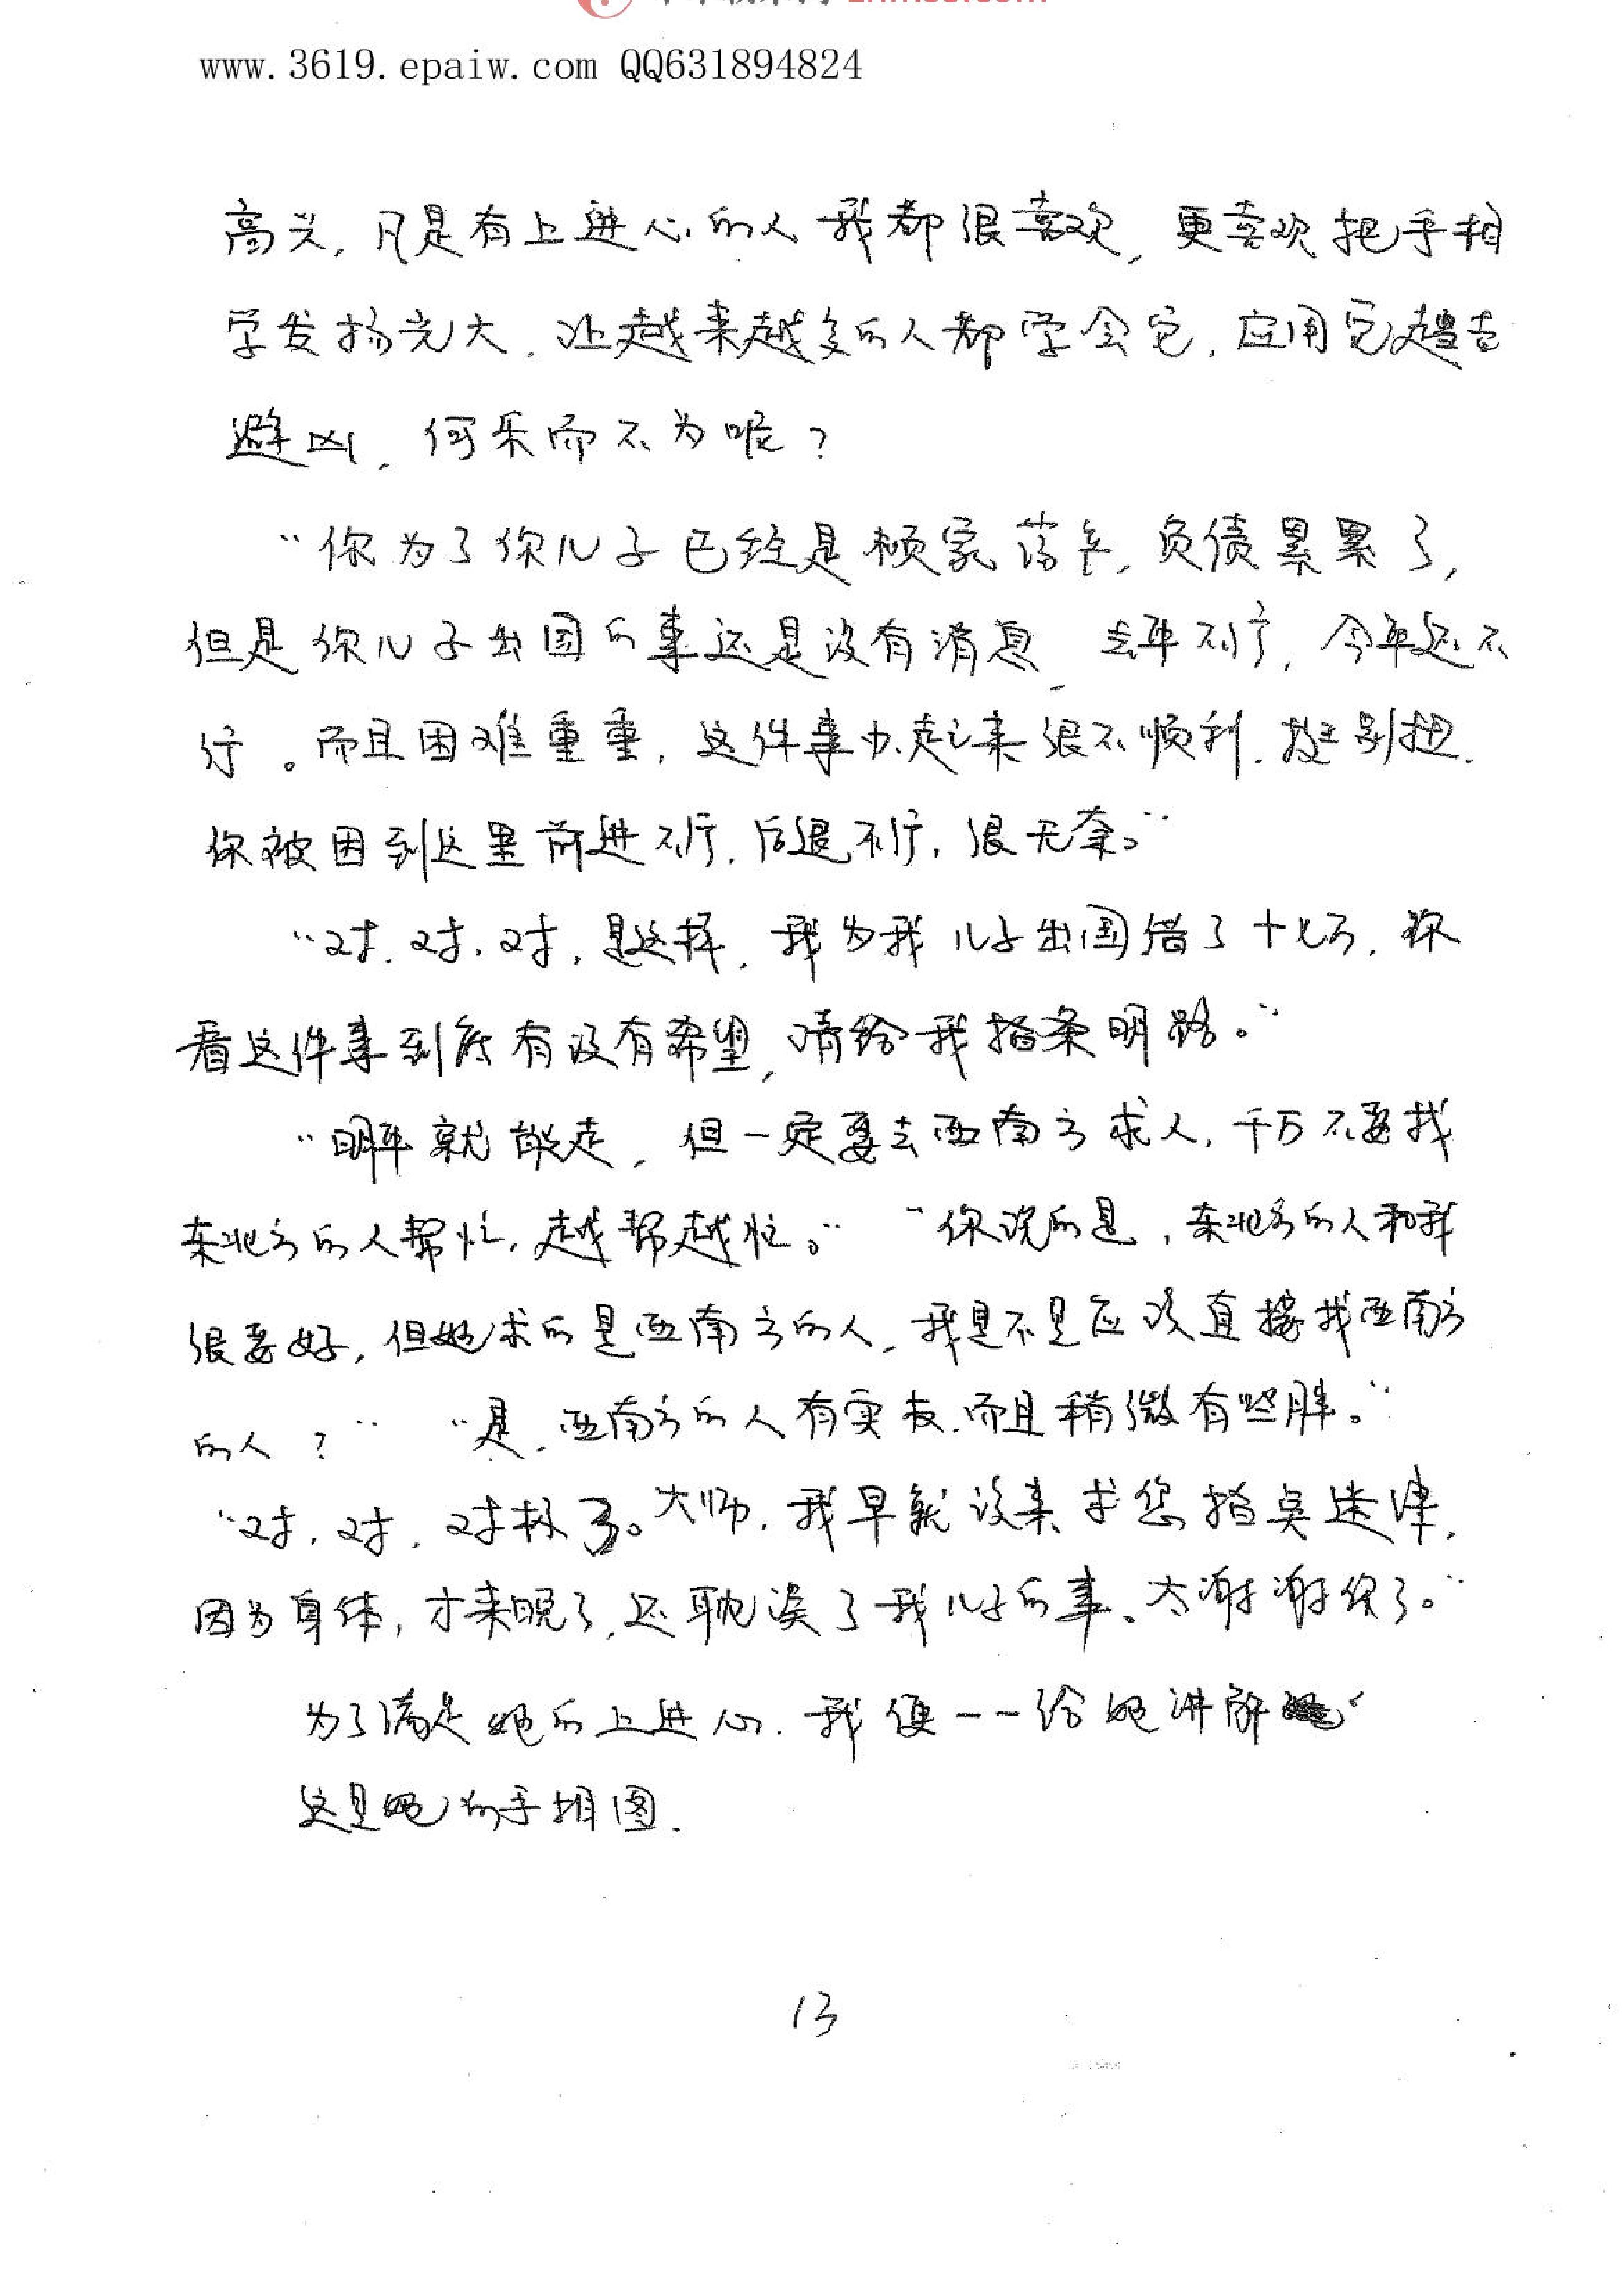 www.3619.epaiw.com QQ631894824
高兴,凡是有上进心的人我都很喜欢,更喜欢把手相
学发扬光大,让越来越多的人都学会它,应用它趋吉
避凶,何乐而不为呢?
“你为了你儿子已经是倾家荡产,负债累累了,
但是你儿子出国的事还是没有消息,去年不行,今年还不
行。而且困难重重,这件事办起来很不顺利.挺别扭.
你被困到这里前进不行,后退不行,很无奈。”
“对,对,对,是这样,我为我儿子出国借了十七万,你
看这件事到底有没有希望,请给我指条明路。”
“明年就能走,但一定要去西南方求人,千万不要找
东北方的人帮忙,越帮越忙。”“你说的是,东北方的人和我
很要好,但她求的是西南方的人,我是不是应该直接找西南方
的人?”“是,西南方的人有实权.而且稍微有些胖。”
“对,对,对极了。大师,我早就该来求您指点迷津,
因为身体,才来晚了,还耽误了我儿子的事、太谢谢您了。”
为了满足她的上进心.我便一一给她讲解
这是她的手相图.
13